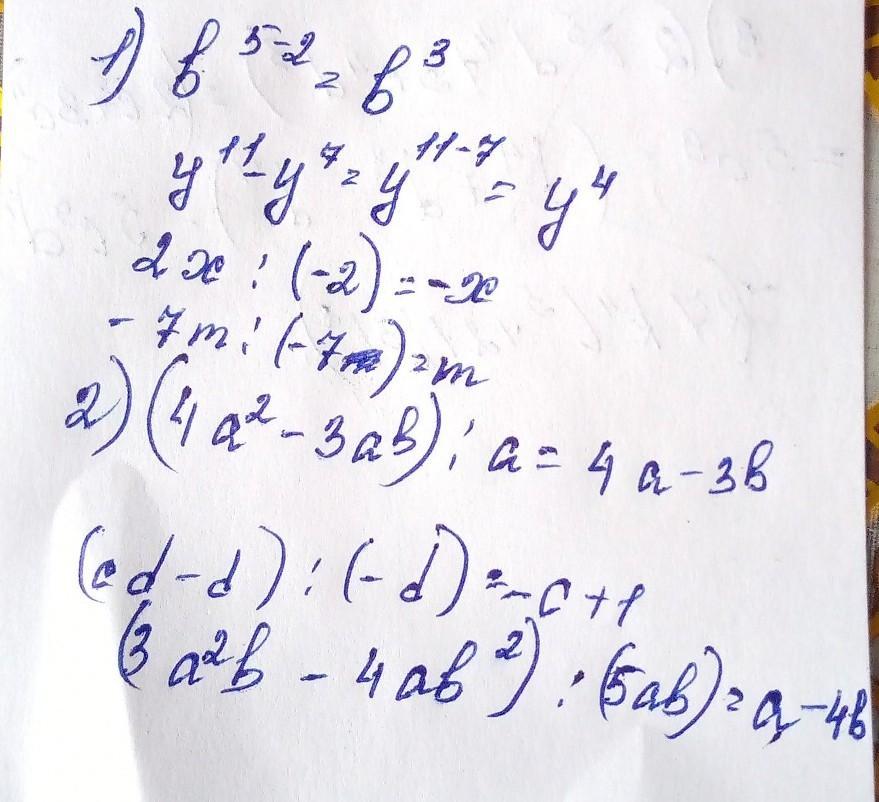 1) b^{5-2} = b^3
y^{11} - y^7 = y^{11-7} = y^4
2x : (-2) = -x
-7m : (-7) = m
2) (4a^2 - 3ab) : a = 4a - 3b
(cd - d) : (-d) = -c + 1
(3a^2b - 4ab^2) : (5ab) = a - 4b